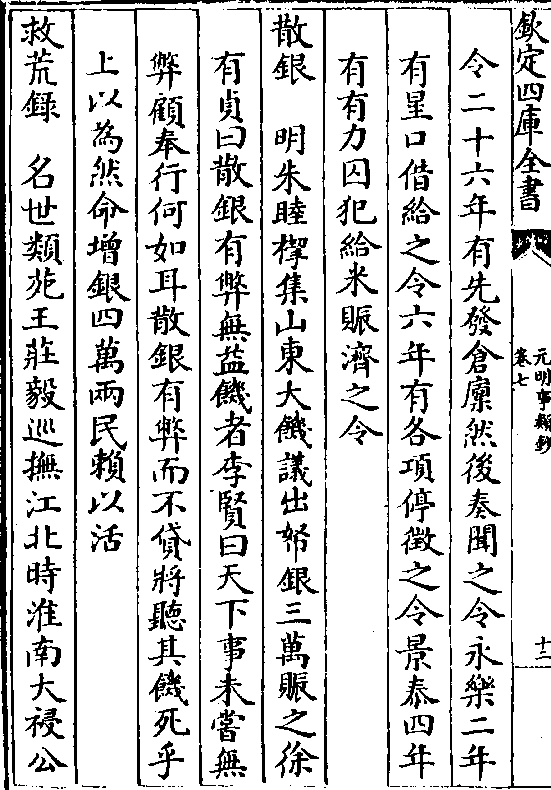 欽定四庫全書
元明事類鈔
卷七
十二
令二十六年有先發倉廩然後奏聞之令永樂二年
有星口借給之令六年有各項停徵之令景泰四年
有有力囚犯給米賑濟之令
散銀　明朱睦㮮集山東大饑議出帑銀三萬賑之徐
有貞曰散銀有弊無益饑者李賢曰天下事未嘗無
弊顧奉行何如耳散銀有弊而不貸將聽其饑死乎
上以為然命增銀四萬兩民賴以活
救荒録　名世類苑王莊毅巡撫江北時淮南大祲公